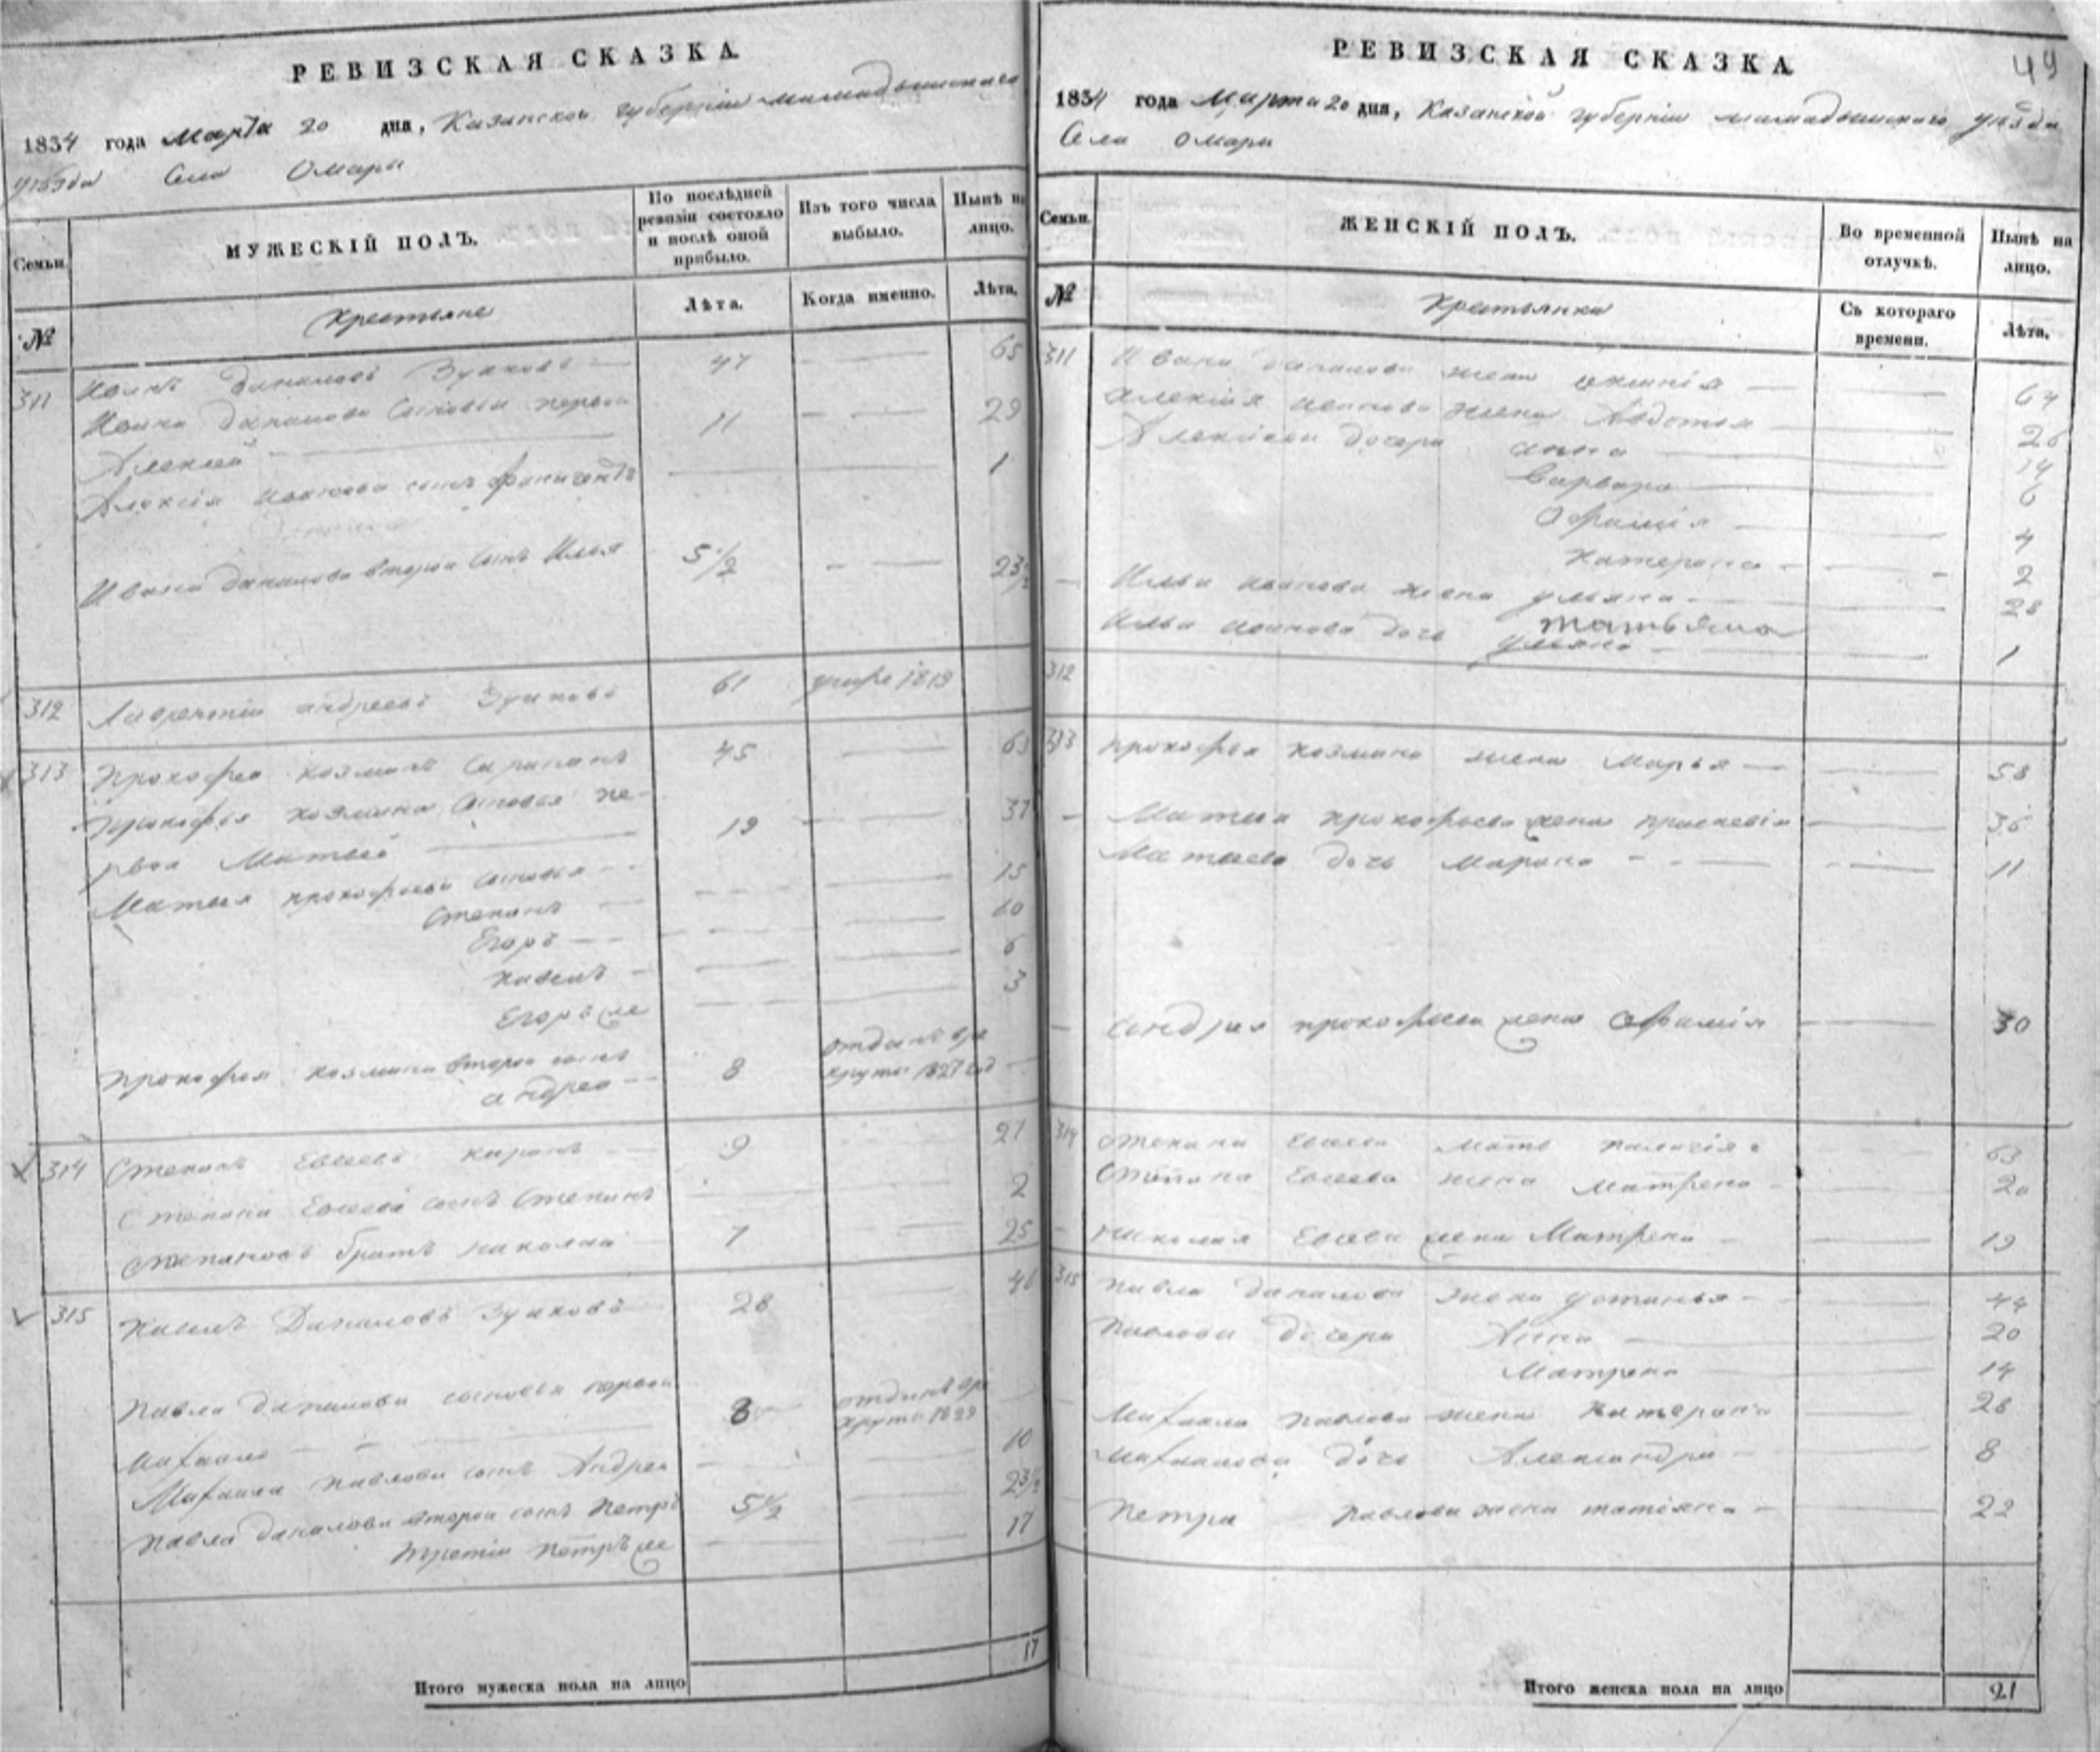 РЕВИЗСКАЯ СКАЗКА
1834 года Марта 20 дня, Казанской губернии мамадышскаго
уѣзда Села Омары
Семьи.
МУЖЕСКІЙ ПОЛЪ.
По послѣдней ревизіи состояло и послѣ оной прибыло.
Изъ того числа выбыло.
Нынѣ на лицо.
№
Крестьяне
Лѣта.
Когда именно.
Лѣта.
311 Иванъ Даниловъ 47 65
Ивана Данилова сыновья первой
Алексей 11 29
Алексія иванова сынъ 1
Ивана Данилова второй сынъ Илья 5 1/2 23 1/2
312 Лаврентій андреевъ 61 умре 1819
313 Прокофей козминъ 45 63
Прокофья козмина сыновья пе-
рвой Матвей 19 37
Матвея прокофьева сыновья
Степанъ 15
Егоръ 10
павелъ 6
Егоръ же 3
прокофья козмина второй сынъ
андрей 8 отданъ в ре
круты 1827 год
314 Степанъ Евсеевъ 9 27
Степана Евсеева сынъ Степанъ 2
Степановъ братъ николай 7 25
315 Павелъ Даниловъ 28 46
Павла данилова сыновья первой
Михайло 8 отданъ в ре
круты 1829
Михаила павлова сынъ Андрей 10
павла данилова второй сынъ Петръ 5 1/2 23 1/2
третій петръ же 17
17
Итого мужеска пола на лицо
РЕВИЗСКАЯ СКАЗКА
49
1834 года Марта 20 дня, Казанской губерніи мамадышскаго уѣзда
Села омары
Семьи.
ЖЕНСКІЙ ПОЛЪ.
Во временной отлучкѣ.
Нынѣ на лицо.
№
Крестьянки
Съ котораго времени.
Лѣта.
311 Ивана данилова жена 64
Алексія иванова жена Авдотья 26
Алексеевы дочери анна 14
Варвара 6
Офимія 4
Катерина 2
Ильи иванова жена ульяна 28
Ильи иванова дочь татьяна
ульяна 1
312
313 прокофья козмина жена Марья 58
Матвея прокофьева жена прасковія 36
Матвеева дочь Марина 11
андрея прокофьева жена офимія 30
314 Степана Евсеева мать 63
Степана Евсеева жена матрена 20
николая Евсеева жена Матрена 19
315 павла данилова жена устинья 44
павловы дочери Анна 20
Матрена 14
Михаила павлова жена катерина 28
михаилова дочь Александра 8
Петра павлова жена татіяна 22
Итого женска пола на лицо 21